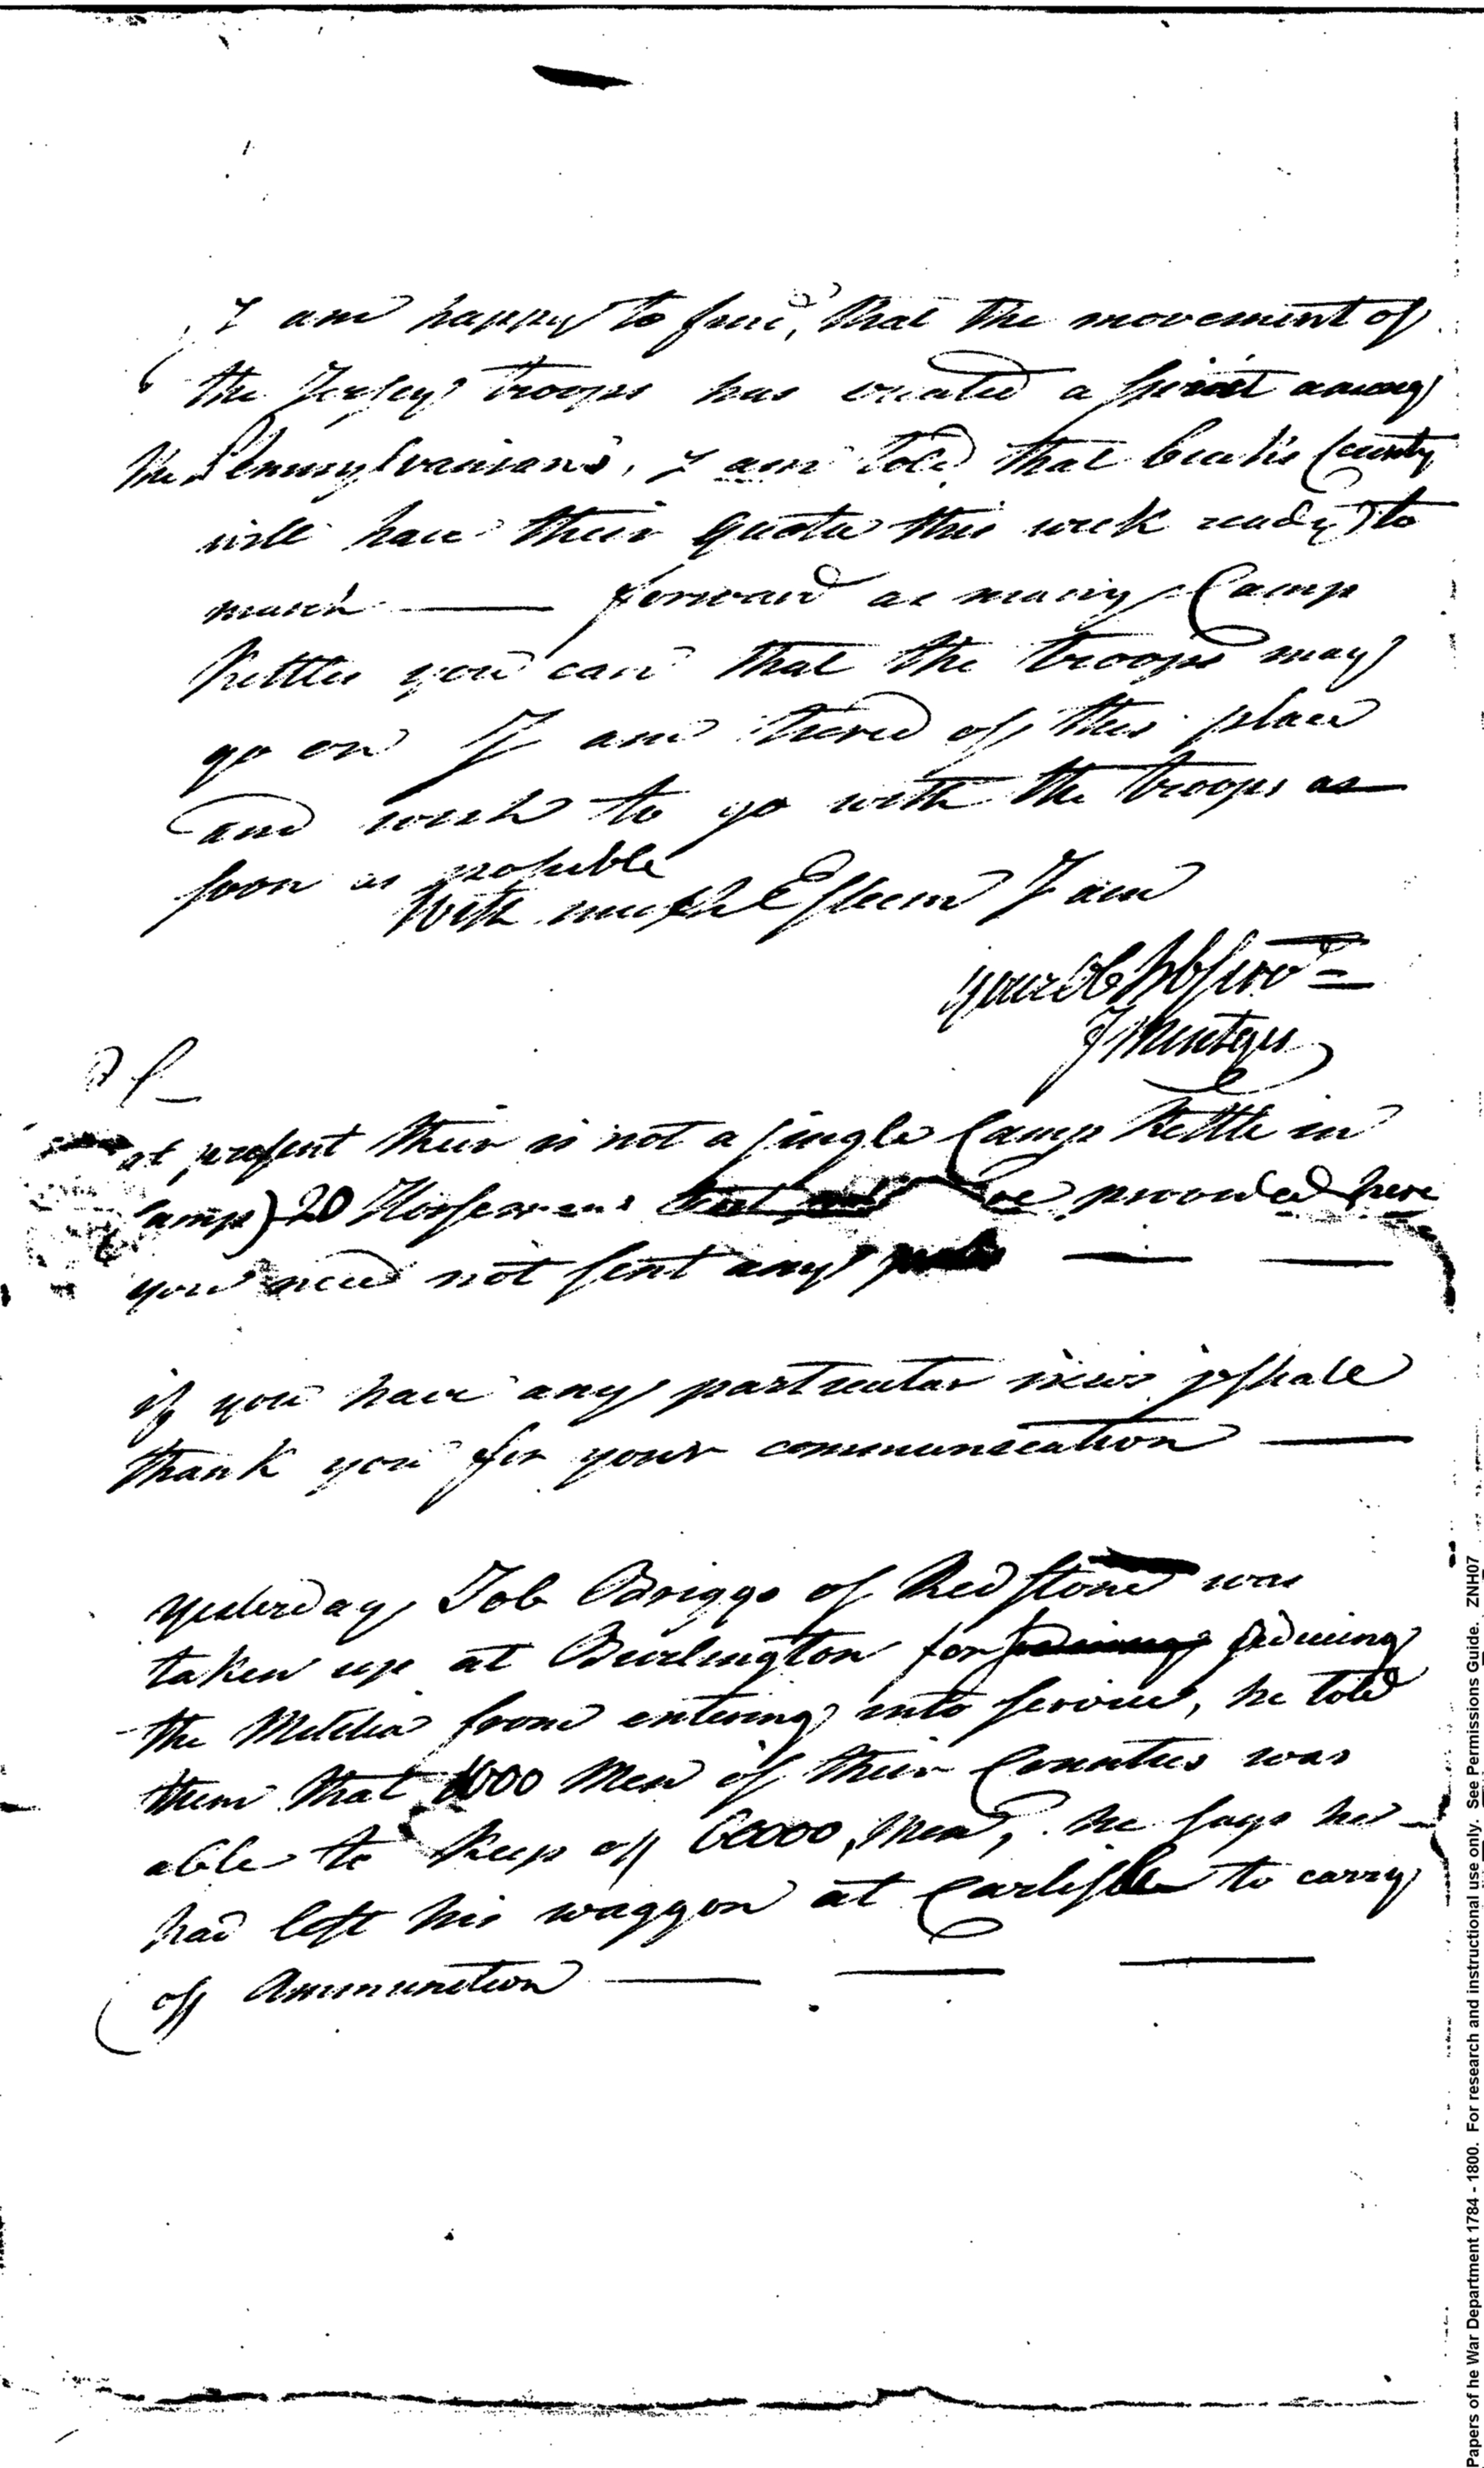 I am happy to find, that the movement of
the Jersey troops has created a spirit among
the Pennsylvanians, I am told that bucks County
will have their quota this week ready to
march — forward as many Camp
kettles you can that the troops may
go on I am tiered of this place
and wish to go with the troops as
soon as possible
With much Esteem I am
your Ob hb serv
J Mentges
at present their is not a single Camp Kettle in
Camp) 20 Horsemans be provided here
you need not sent any
if you have any particular news jshale
thank you for your communication —
yesterday Job Briggs of Redstone was
taken up at Burlington for
the Militia from entering into service, he told
them that 1000 Men of their Counties was
able to keep off 6000 Men, he says he
had left his waggon at Carlisle to carry
off Ammunition — — —
Papers of he War Department 1784 - 1800. For research and instructional use only. See Permissions Guide. ZNH07